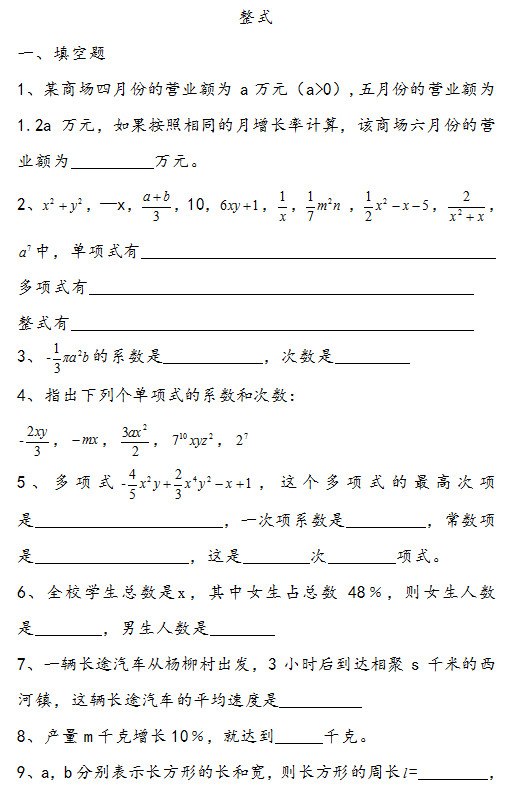 整式
一、填空题
1、某商场四月份的营业额为 a 万元（a>0）,五月份的营业额为
1.2a 万元，如果按照相同的月增长率计算，该商场六月份的营
业额为__________万元。
2、x² + y²，—x，(a+b)/3，10，6xy+1，1/x，1/7 m²n，1/2 x² − x − 5，2/(x² + x)，
a⁷中，单项式有__________
多项式有__________
整式有__________
3、-1/3 πa²b的系数是__________，次数是________
4、指出下列个单项式的系数和次数：
-2xy/3，−mx，3ax²/2，7¹⁰xyz²，2⁷
5、多项式-4/5 x²y + 2/3 x⁴y² − x + 1，这个多项式的最高次项
是__________，一次项系数是________，常数项
是__________，这是______次______项式。
6、全校学生总数是x，其中女生占总数 48％，则女生人数
是______，男生人数是______
7、一辆长途汽车从杨柳村出发，3 小时后到达相聚 s 千米的西
河镇，这辆长途汽车的平均速度是________
8、产量m千克增长10％，就达到_____千克。
9、a，b分别表示长方形的长和宽，则长方形的周长l=_______，